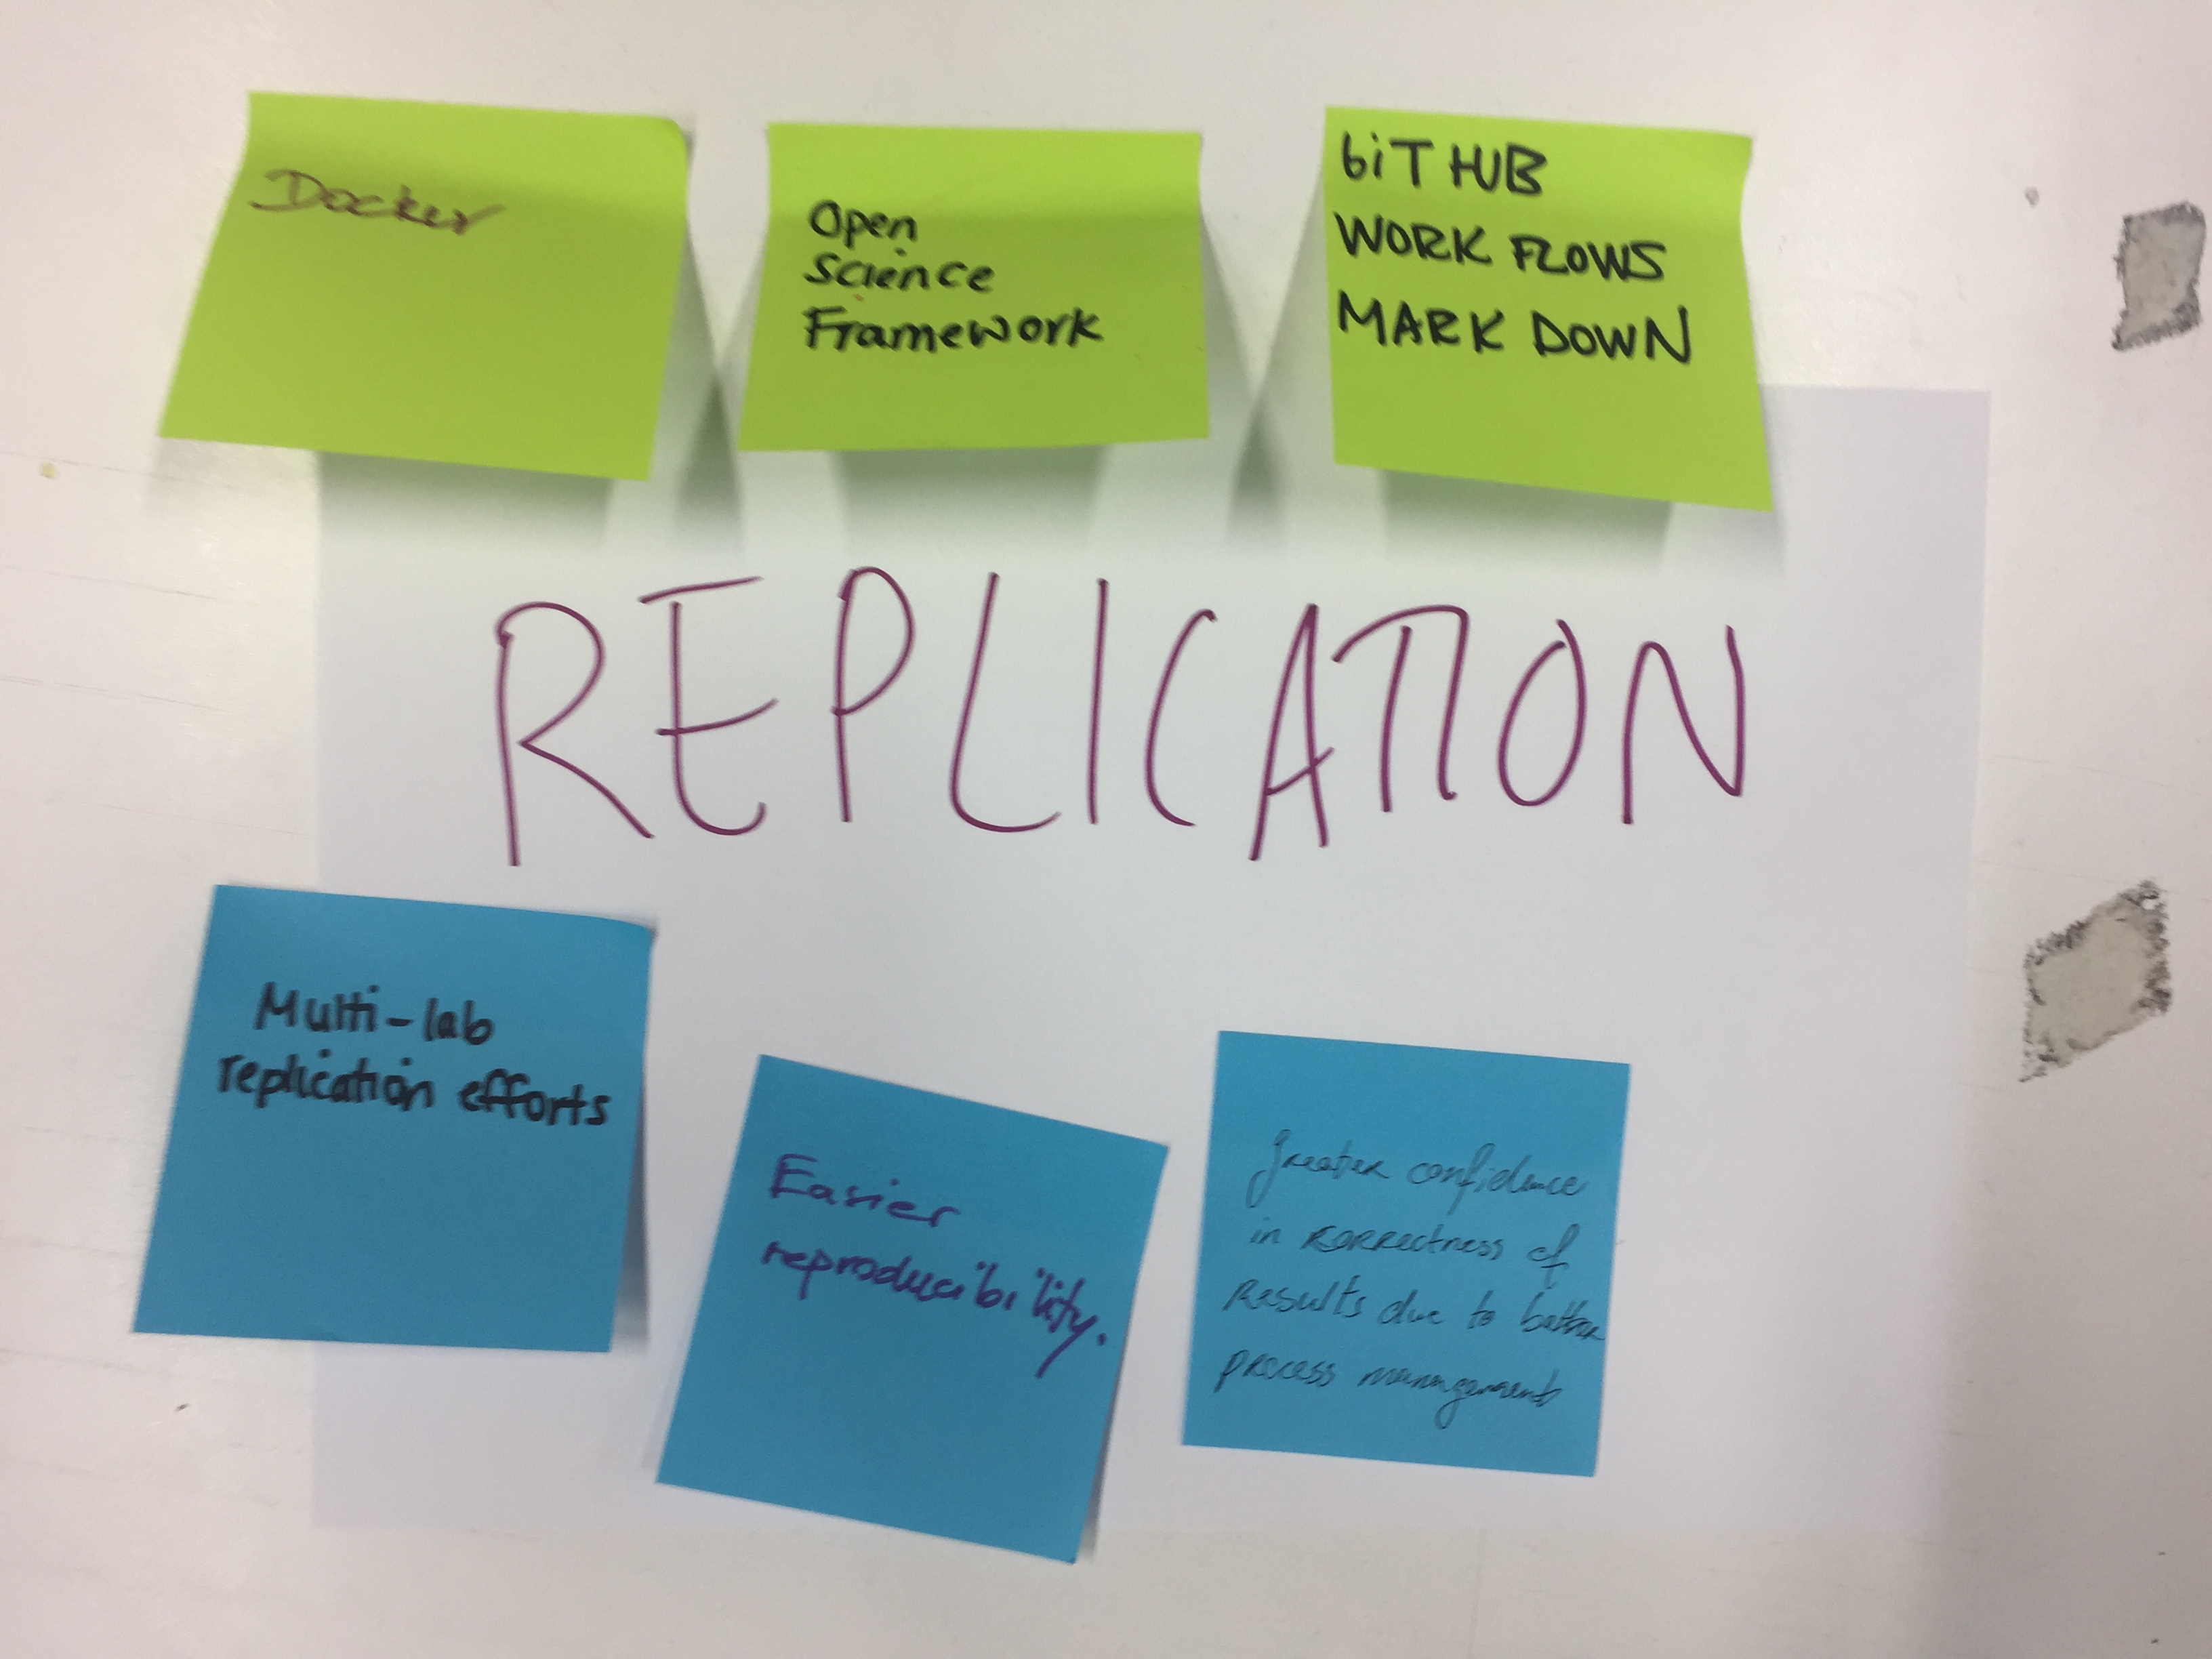 Docker
Open
Science
Framework
GiT HUB
WORK FLOWS
MARK DOWN
REPLICATION
Multi-lab
replication efforts
Easier
reproducibility.
greater confidence
in correctness of
Results due to better
process management